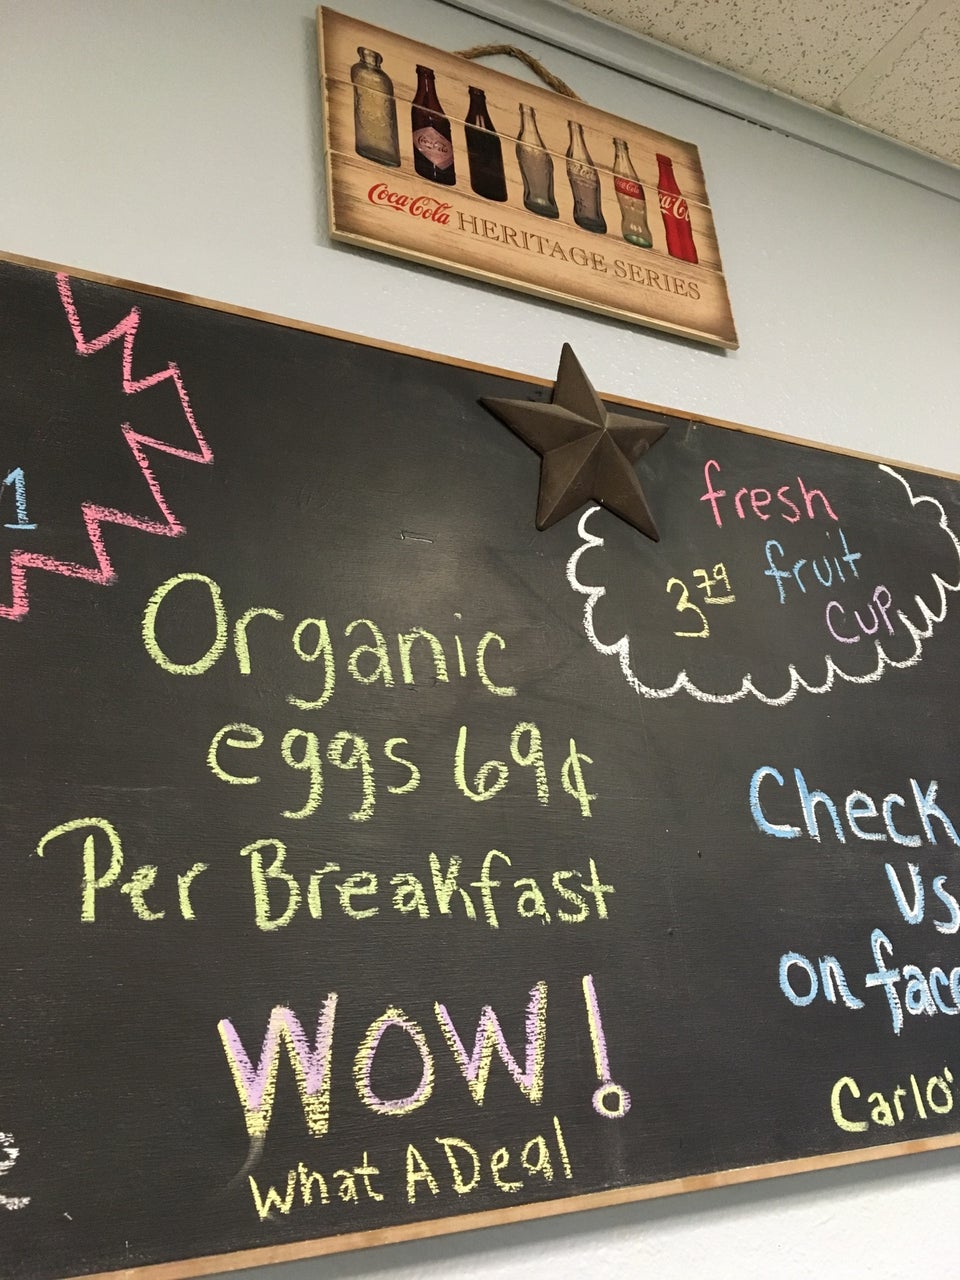 Coca-Cola HERITAGE SERIES
1
fresh
3.79 fruit
cup
Organic
eggs 69¢
Per Breakfast
WOW!
What A Deal
Check
Us
on face
Carlo'